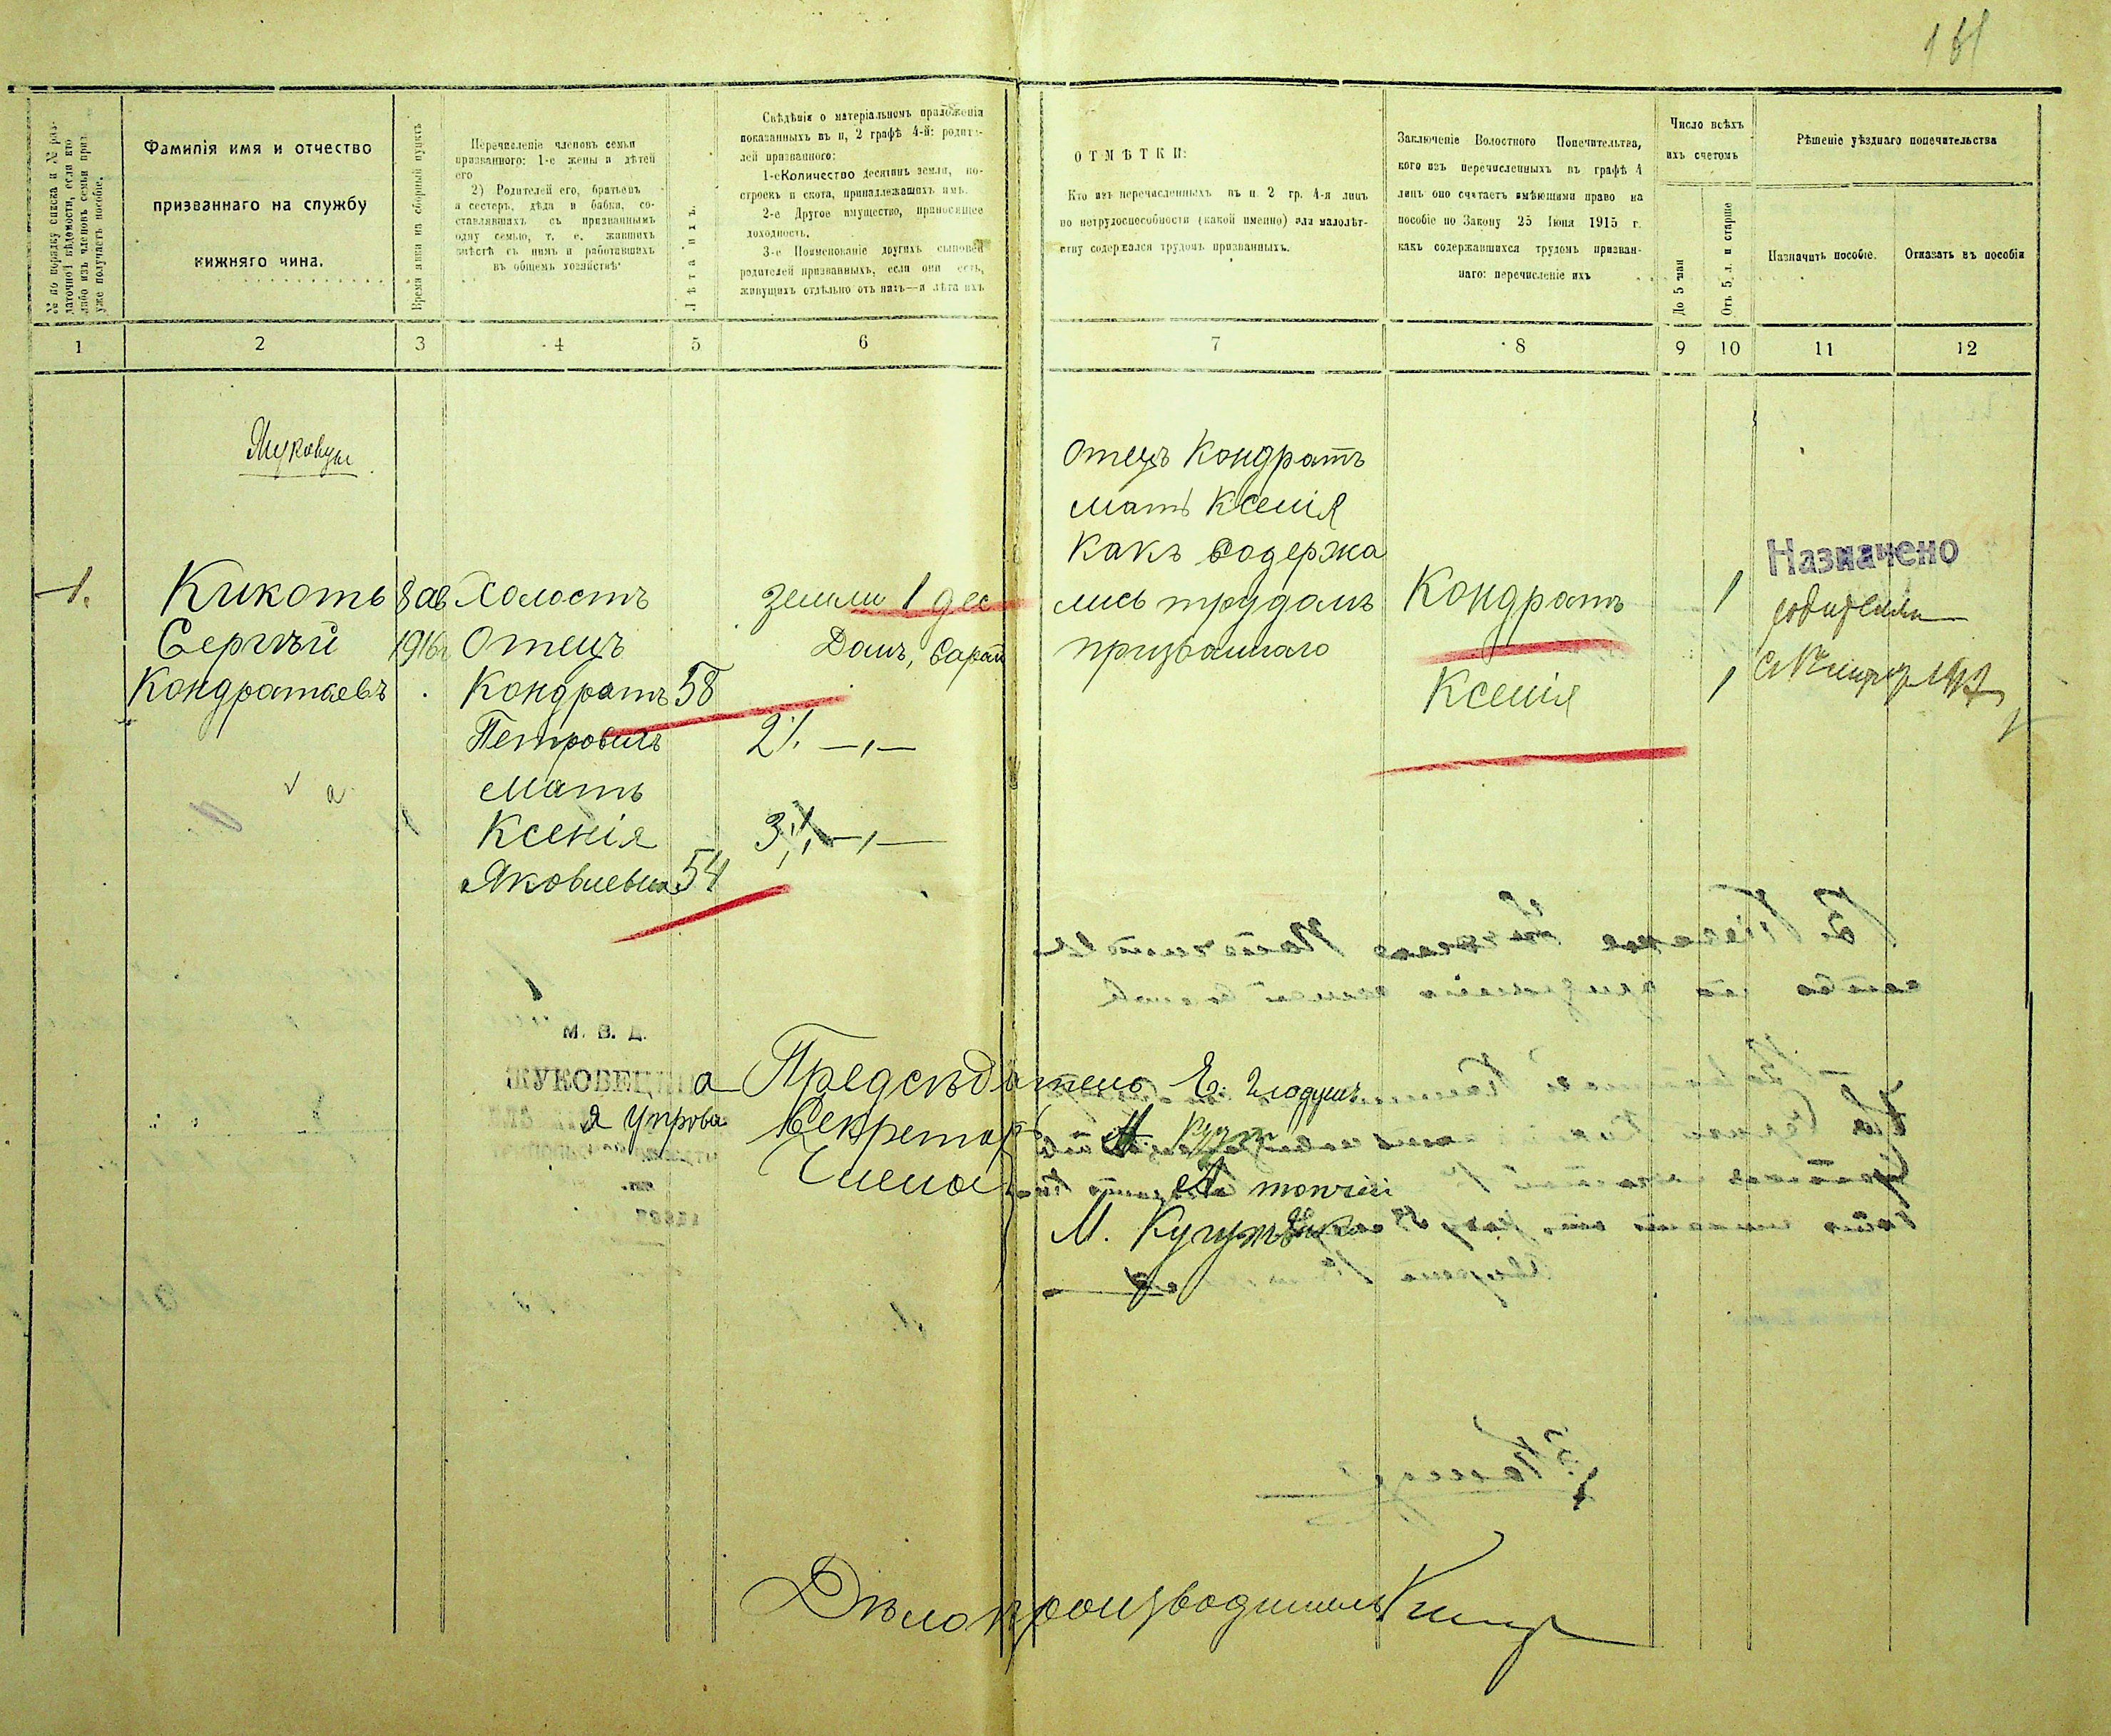 161
№ по порядку списка и № раз-
даточной вѣдомости, если кто
либо изъ членовъ семьи приз.
уже получаетъ пособіе.
Фамилія имя и отчество
призваннаго на службу
нижняго чина.
Время явки на сборный пунктъ
Перечисленіе членовъ семьи
призваннаго: 1-е жены и дѣтей
его
2) Родителей его, братьевъ
и сестеръ, дѣда и бабки, со-
ставлявшихъ съ призваннымъ
одну семью, т. е. жившихъ
вмѣстѣ съ нимъ и работавшихъ
въ общемъ хозяйствѣ
Лѣта ихъ.
Свѣдѣнія о матеріальномъ праложенія
показанныхъ въ п, 2 графѣ 4-й: родите-
лей призваннаго:
1-е Количество десятинъ земли, по-
строекъ и скота, приналлежащихъ имъ.
2-е Другое имущество, приносящее
доходность.
3-е Поименованіе другихъ сыновей
родителей призванныхъ, если они есть,
живущихъ отдѣльно отъ нихъ—и лѣта ихъ
ОТМѢТКИ:
Кто изъ перечисленныхъ въ п. 2 гр. 4-я лицъ
по нетрудоспособности (какой именно) или малолѣт-
ству содержался трудомъ призванныхъ.
Заключеніе Волостного Попечительства,
кого изъ перечисленныхъ въ графѣ 4
лицъ оно считаетъ имѣющими право на
пособіе по Закону 25 Іюня 1915 г.
какъ содержавшихся трудомъ призван-
наго: перечисленіе ихъ
Число всѣхъ
ихъ счетомъ
До 5 лѣтъ
Отъ 5 л. и старше
Рѣшеніе уѣзднаго попечительства
Назначить пособіе.
Отказать въ пособіи
1 2 3 4 5 6 7 8 9 10 11 12
Жуковцы
Отецъ Кондратъ
мать Ксенія
какъ содержа
лись трудомъ
призваннаго
1.
Кикоть
Сергѣй
Кондратьевъ
8 ав
1916 г
Холостъ
Отецъ
Кондратъ 58
Петровичъ
Мать
Ксенія
Яковлевна 54
Земли 1 дес
Домъ, сарай
2). —,—
3). —,—
Кондратъ 1
Ксенія 1
Назначено
родителямъ
М. В. Д.
ЖУКОВЕЦ
Предсѣдатель Е. Гладушъ
Секретарь
Члены
М.
Дѣлопроизводитель